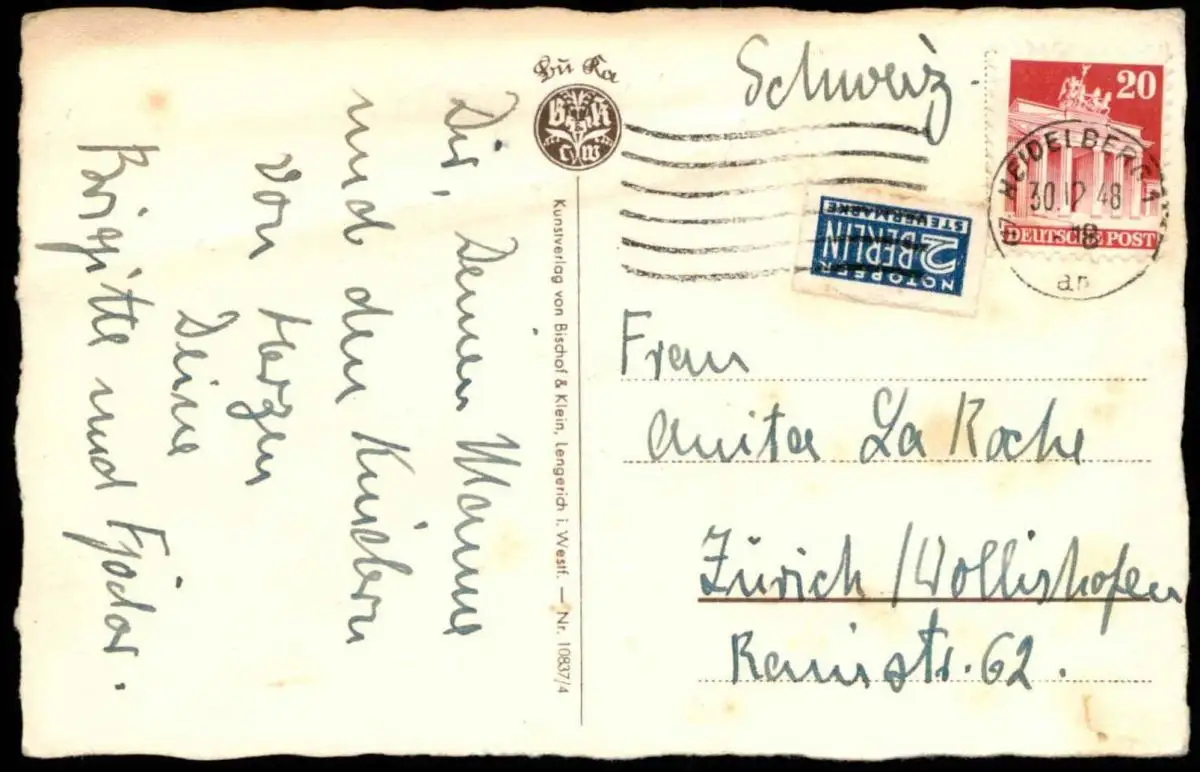 Dir, Deinem Manne
und den Kindern
von Herzen
Deine
Brigitte und Fjodor.
Bü Ka
B K
L W
Kunstverlag von Bischof & Klein, Lengerich i. Westf. — Nr. 10837/4
Schweiz.
20
DEUTSCHE POST
HEIDELBERG 1
30.12.48
18
an
NOTOPFER
2 BERLIN
STEUERMARKE
Frau
Anita La Roche
Zürich/Wollishofen
Rainstr. 62.